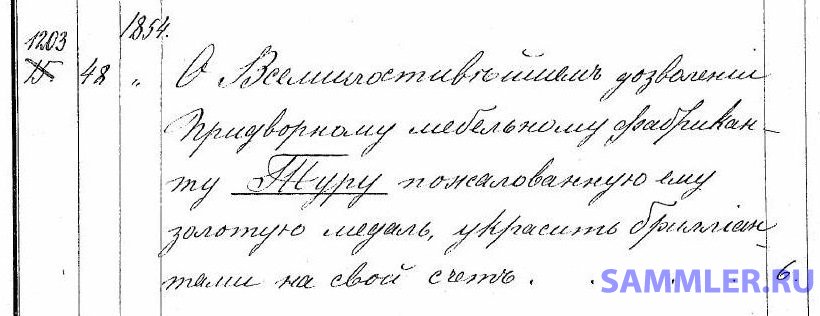 1854.
1203
15 48 „ О Всемилостивѣйшемъ дозволеніи
Придворному мебельному фабрикан-
ту Туру пожалованную ему
золотую медаль, украсить брилліан-
тами на свой счетъ . . . . 6.
SAMMLER.RU